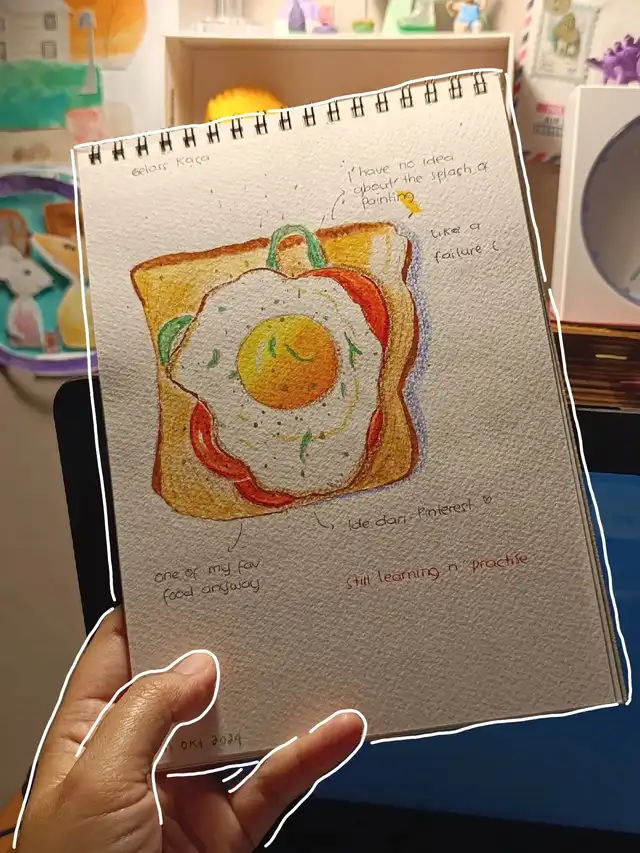 Gelass Kaca
I have no idea
about the splash of
painting
Like a
failure :(
Ide dari Pinterest
one of my fav
food anyway
still learning n' practise
OKt 2024